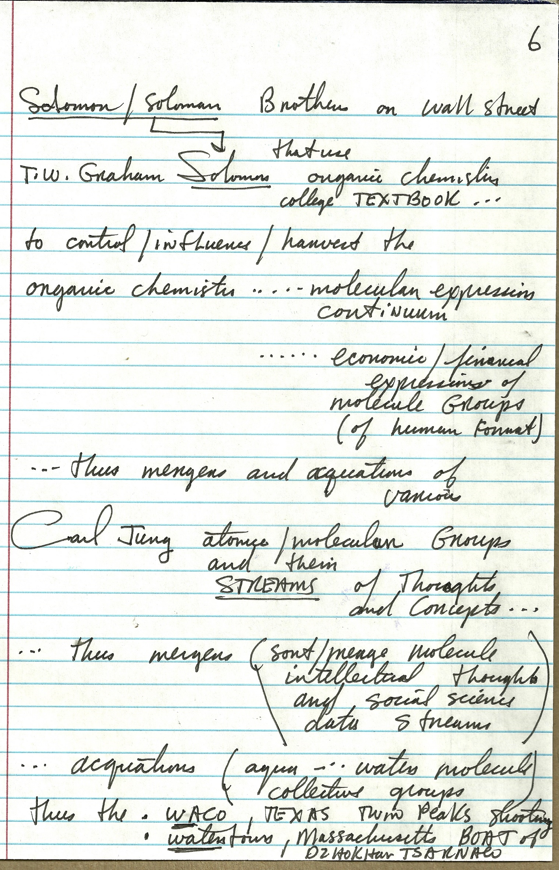 6
Solomon / Soloman Brothers on wall street
that use
T.W. Graham Solomos organic chemistris
college TEXTBOOK ...
to control / influence / harvest the
organic chemistr ..... molecular expression
continuum
...... economic / financial
expressions of
molecule Groups
(of human Format)
... thus mergers and acquations of
various
Carl Jung atomic / molecular Groups
and their
STREAMS of Thoughts
and Concepts...
... thus mergers (sort/merge molecule
intellectual thoughts
and social science
data streams)
... acquations (aqua ... water molecule
collective groups)
thus the • WACO, TEXAS Twin Peaks shooting
• watertown, Massachusetts BOAT of
DZHOKHAR TSARNAEV